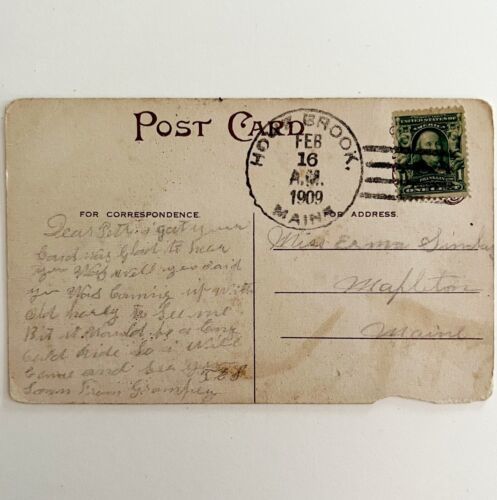 POST CARD
HOYT BROOK,
FEB
16
A.M.
1909
MAINE
UNITED STATES OF
AMERICA
ONE CENT
FOR CORRESPONDENCE.
FOR ADDRESS.
Dear i got your
Card was Glad to hear
you was well you said
you was Coming up with
Old to See me
But it Would be a Long
Cold ride So i will
Come and See you
Soon From Grampey
Miss Erma
Mapleton
Maine